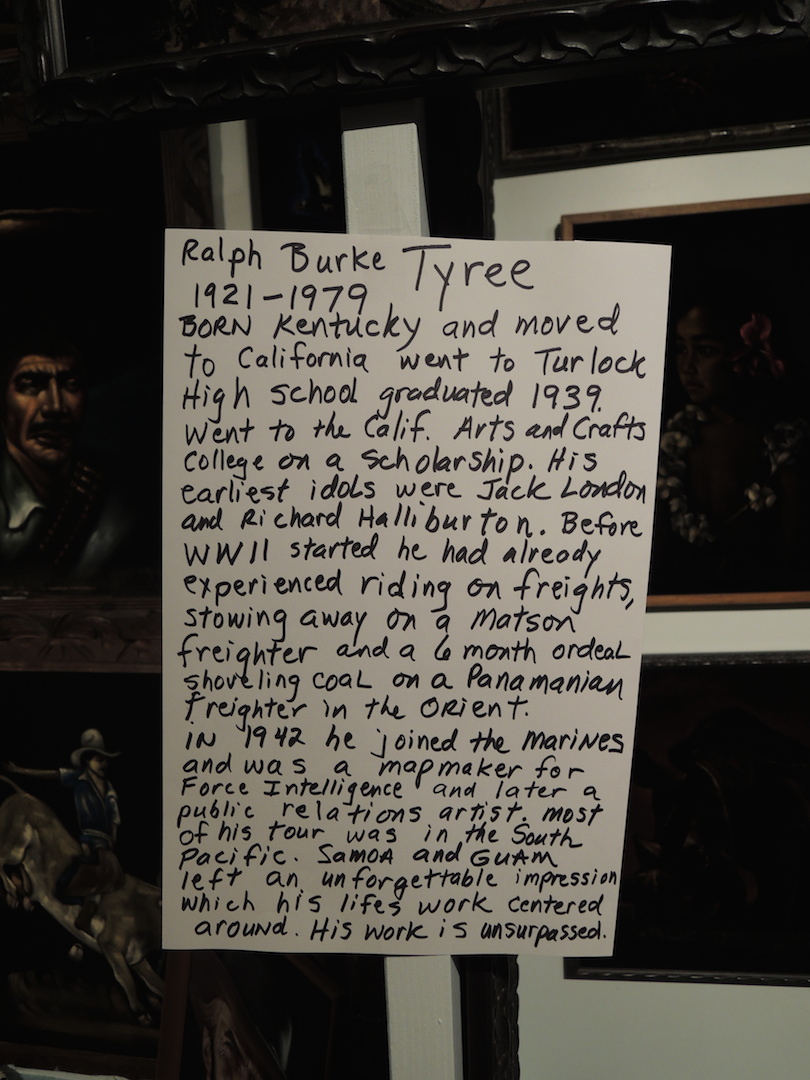 Ralph Burke Tyree
1921-1979
BORN Kentucky and moved
to California went to Turlock
High school graduated 1939.
Went to the Calif. Arts and Crafts
College on a scholarship. His
earliest idols were Jack London
and Richard Halliburton. Before
WWII started he had already
experienced riding on freights,
stowing away on a Matson
freighter and a 6 month ordeal
shoveling coal on a Panamanian
freighter in the ORIENT.
IN 1942 he joined the MARINES
and was a mapmaker for
Force Intelligence and later a
public relations artist. most
of his tour was in the South
Pacific. SAMOA and GUAM
left an unforgettable impression
which his lifes work centered
around. His work is unsurpassed.